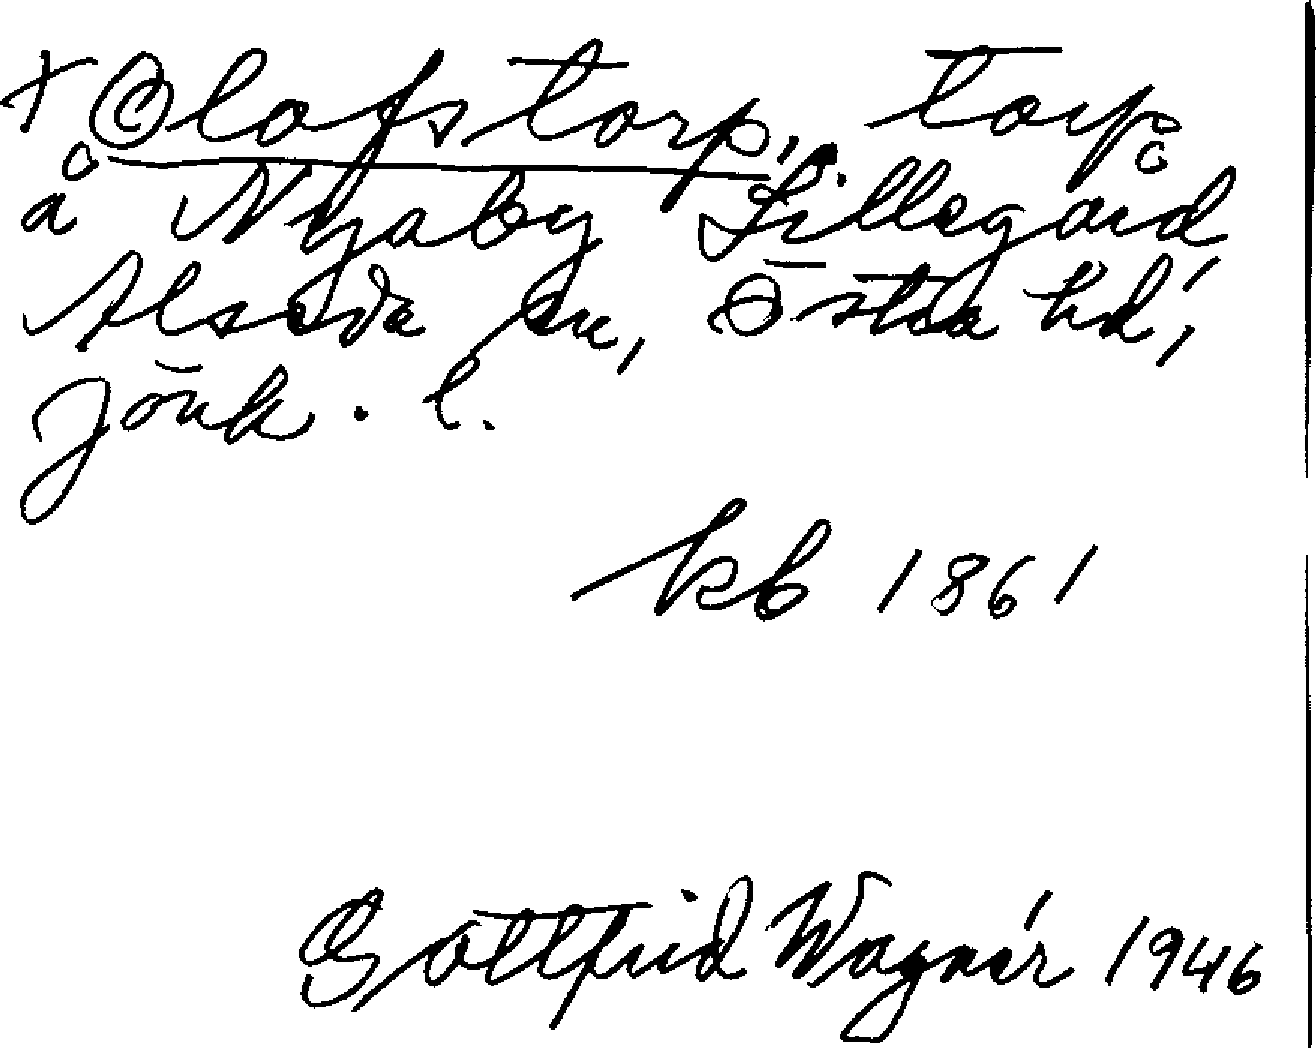 + Olofstorp, torp
å Nyaby Lillegård
Alseda sn, Östra hd,
Jönk. l.
kb 1861
Gottfrid Wagnér 1946